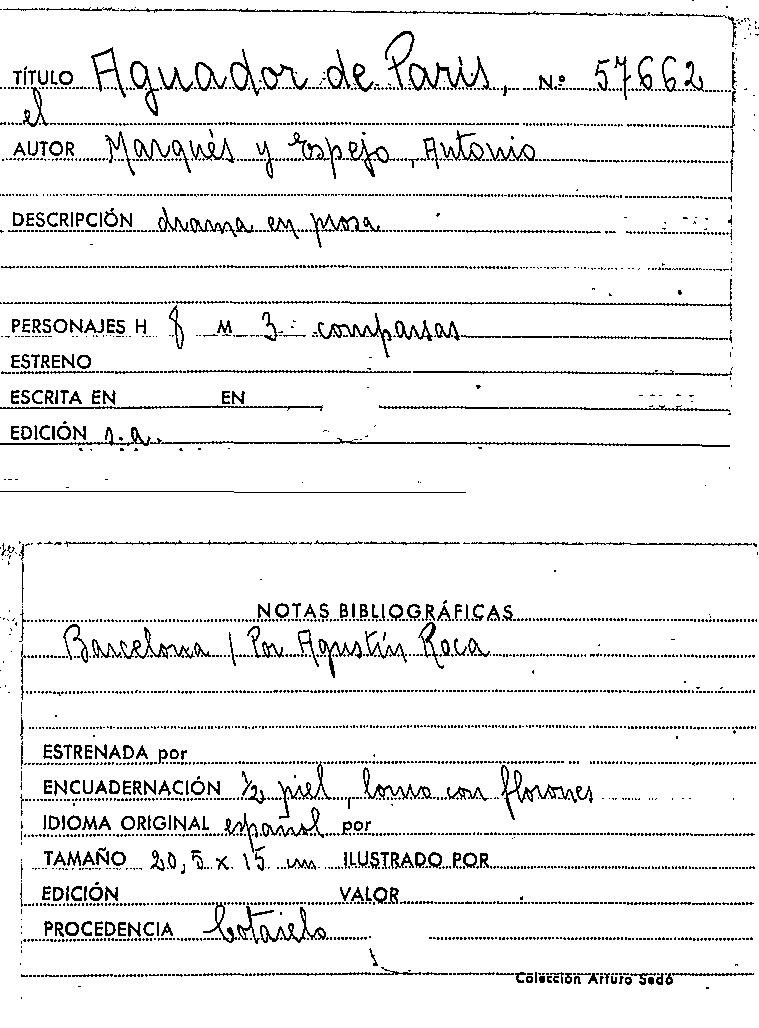 TÍTULO Aguador de París, N.º 57662
el
AUTOR Marqués y Espejo, Antonio
DESCRIPCIÓN drama en prosa
PERSONAJES H 8 M 3 comparsas
ESTRENO
ESCRITA EN EN
EDICIÓN s.a.
NOTAS BIBLIOGRÁFICAS
Barcelona / Por Agustín Roca
ESTRENADA por
ENCUADERNACIÓN 1/2 piel, lomo con florones
IDIOMA ORIGINAL español por
TAMAÑO 20,5 x 15 cm ILUSTRADO POR
EDICIÓN VALOR
PROCEDENCIA Cotarelo
Colección Arturo Sedó